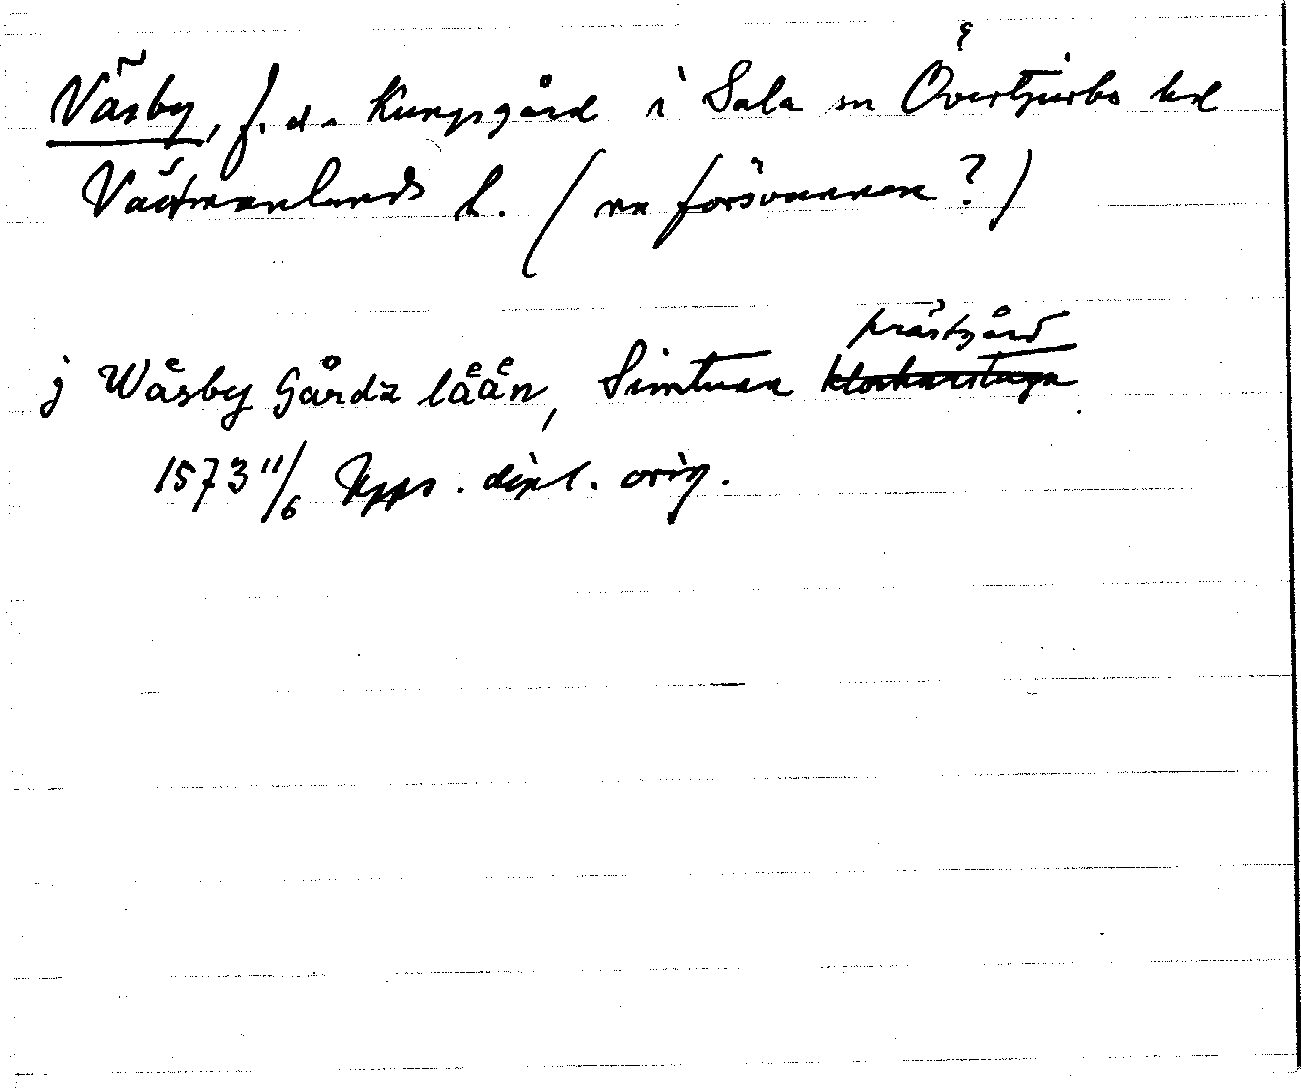 Väsby, f. d. Kungsgård i Sala sn Övertjurbo hd
Västmanlands l. (nu försvunnen?)
j Wåsby Gårdz låån, Simtuna klockarstuga prästgård
1573 11/6 Upps. dipl. orig.